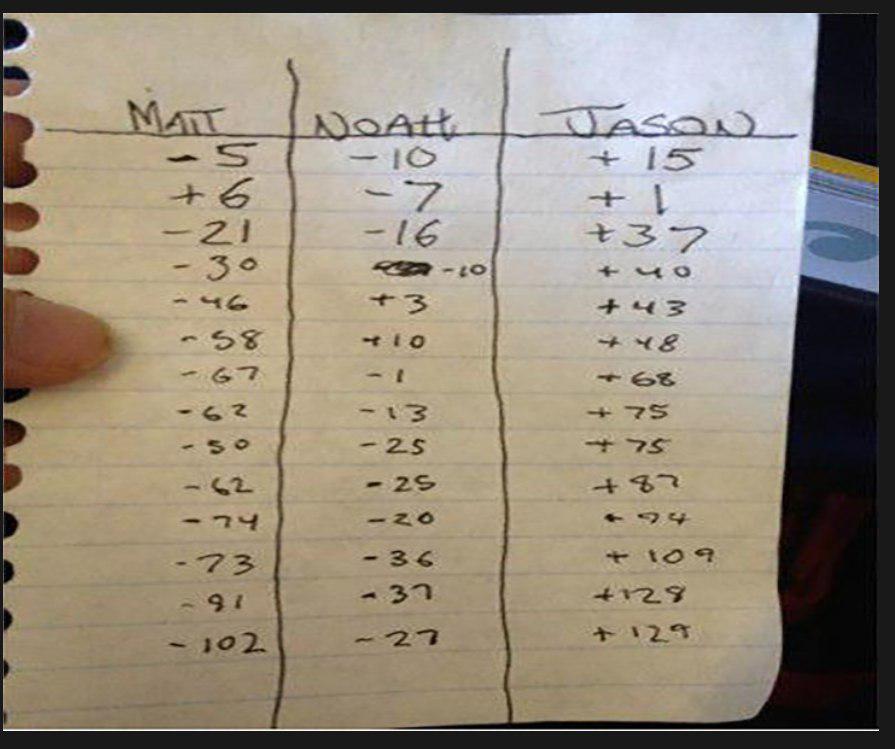 MATT NOAH JASON
- 5 - 10 + 15
+ 6 - 7 + 1
- 21 - 16 + 37
- 30 - 10 + 40
- 46 + 3 + 43
- 58 + 10 + 48
- 67 - 1 + 68
- 62 - 13 + 75
- 50 - 25 + 75
- 62 - 25 + 87
- 74 - 20 + 94
- 73 - 36 + 109
- 91 - 37 + 128
- 102 - 27 + 129